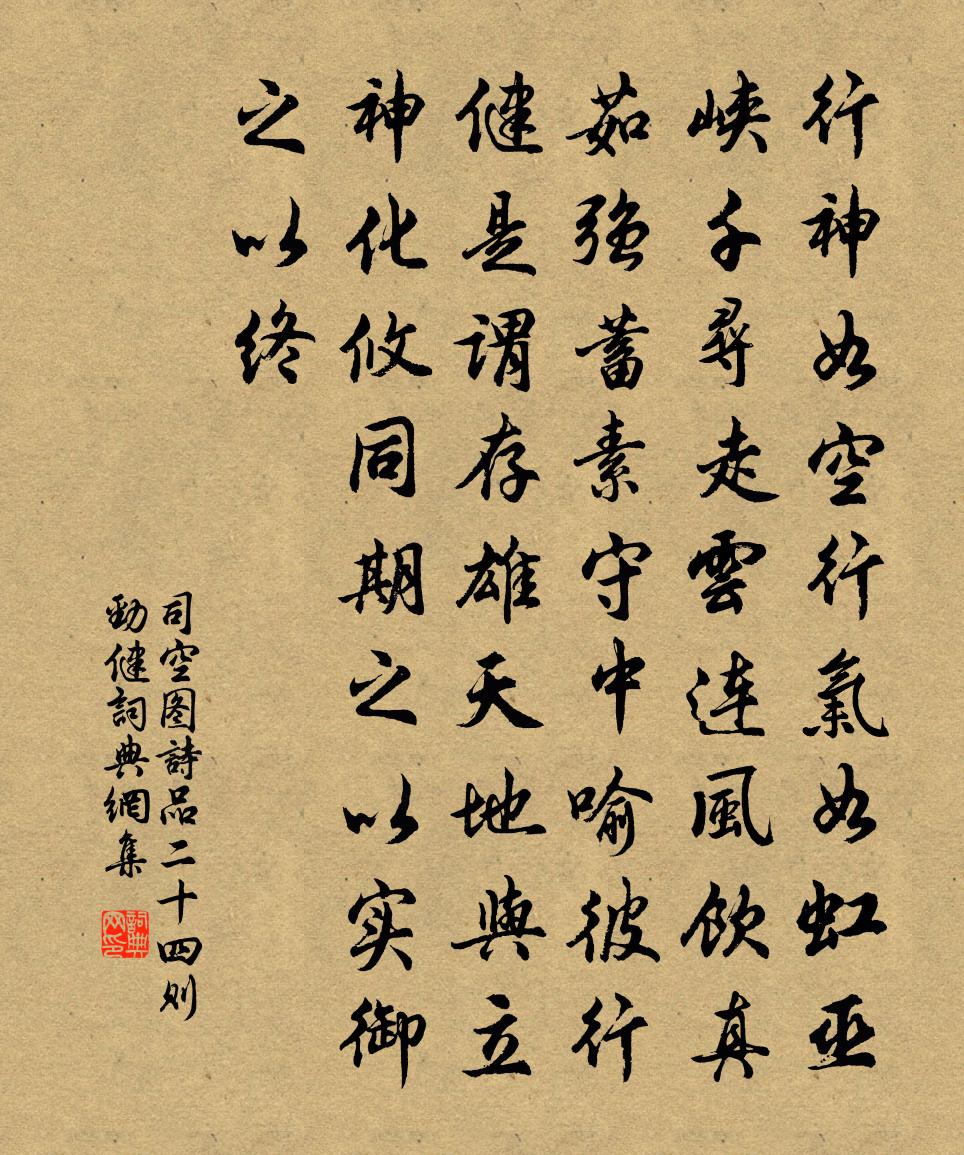 行神如空行氣如虹巫
峽千尋走雲連風飲真
茹強蓄素守中喻彼行
健是謂存雄天地與立
神化攸同期之以实御
之以终
司空图詩品二十四则
勁健詞典網集
詞典网印